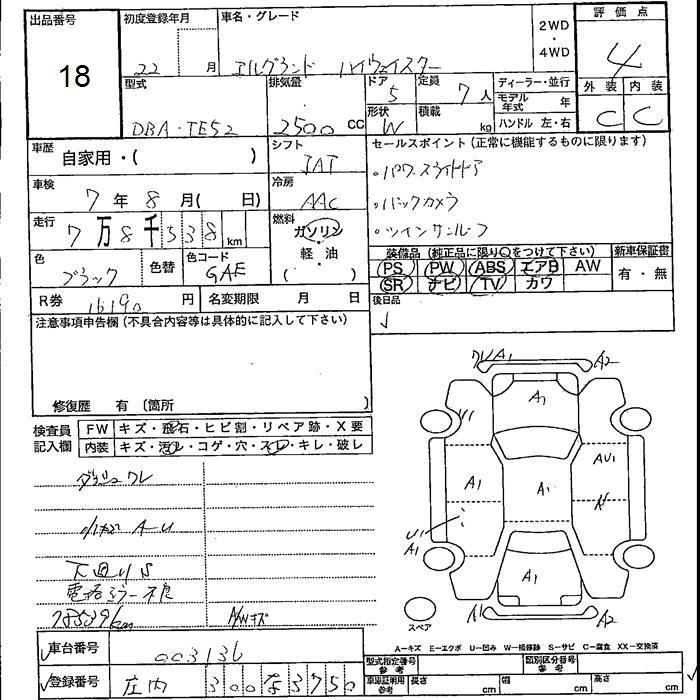 出品番号
18
初度登録年月
22 月
車名・グレード
エルグランド ハイウェイスター
2WD
・
4WD
評価点
4
外装 内装
C C
型式
DBA-TE52
排気量
2500 CC
ドア
5
形状
W
定員
7人
積載
kg
ディーラー・並行
モデル年式 年
ハンドル 左・右
車歴
自家用・( )
シフト
IAT
セールスポイント (正常に機能するものに限ります)
・パワースライドドア
・バックカメラ
・ツインサンルーフ
車検
7年8月( 日)
冷房
AAC
走行
7万8千538km
燃料
ガソリン
軽・油
( )
色
ブラック
色替
色コード
GAE
装備品 (純正品に限り○をつけて下さい)
PS PW ABS エアB AW
SR ナビ TV カワ
新車保証書
有・無
R券
16190 円
名変期限 月 日
後日品
注意事項申告欄 (不具合内容等は具体的に記入して下さい)
修復歴 有 〔箇所 〕
検査員記入欄
FW キズ・飛石・ヒビ割・リペア跡・X要
内装 キズ・汚レ・コゲ・穴・スレ・キレ・破レ
ダッシュワレ
下廻りS
電格ミラー不良
78539km
A/Wキズ
A2
A1
U1
A1
AU1
A1
A1
U1
A1
A1
A1
A2
スペア
A-キズ E-エクボ U-凹み W-補修跡 S-サビ C-腐食 XX-交換済
車台番号
003136
登録番号
庄内 300な3750
型式指定番号 参考
類別区分番号 参考
車庫証明用 参考
長さ cm
幅 cm
高さ cm